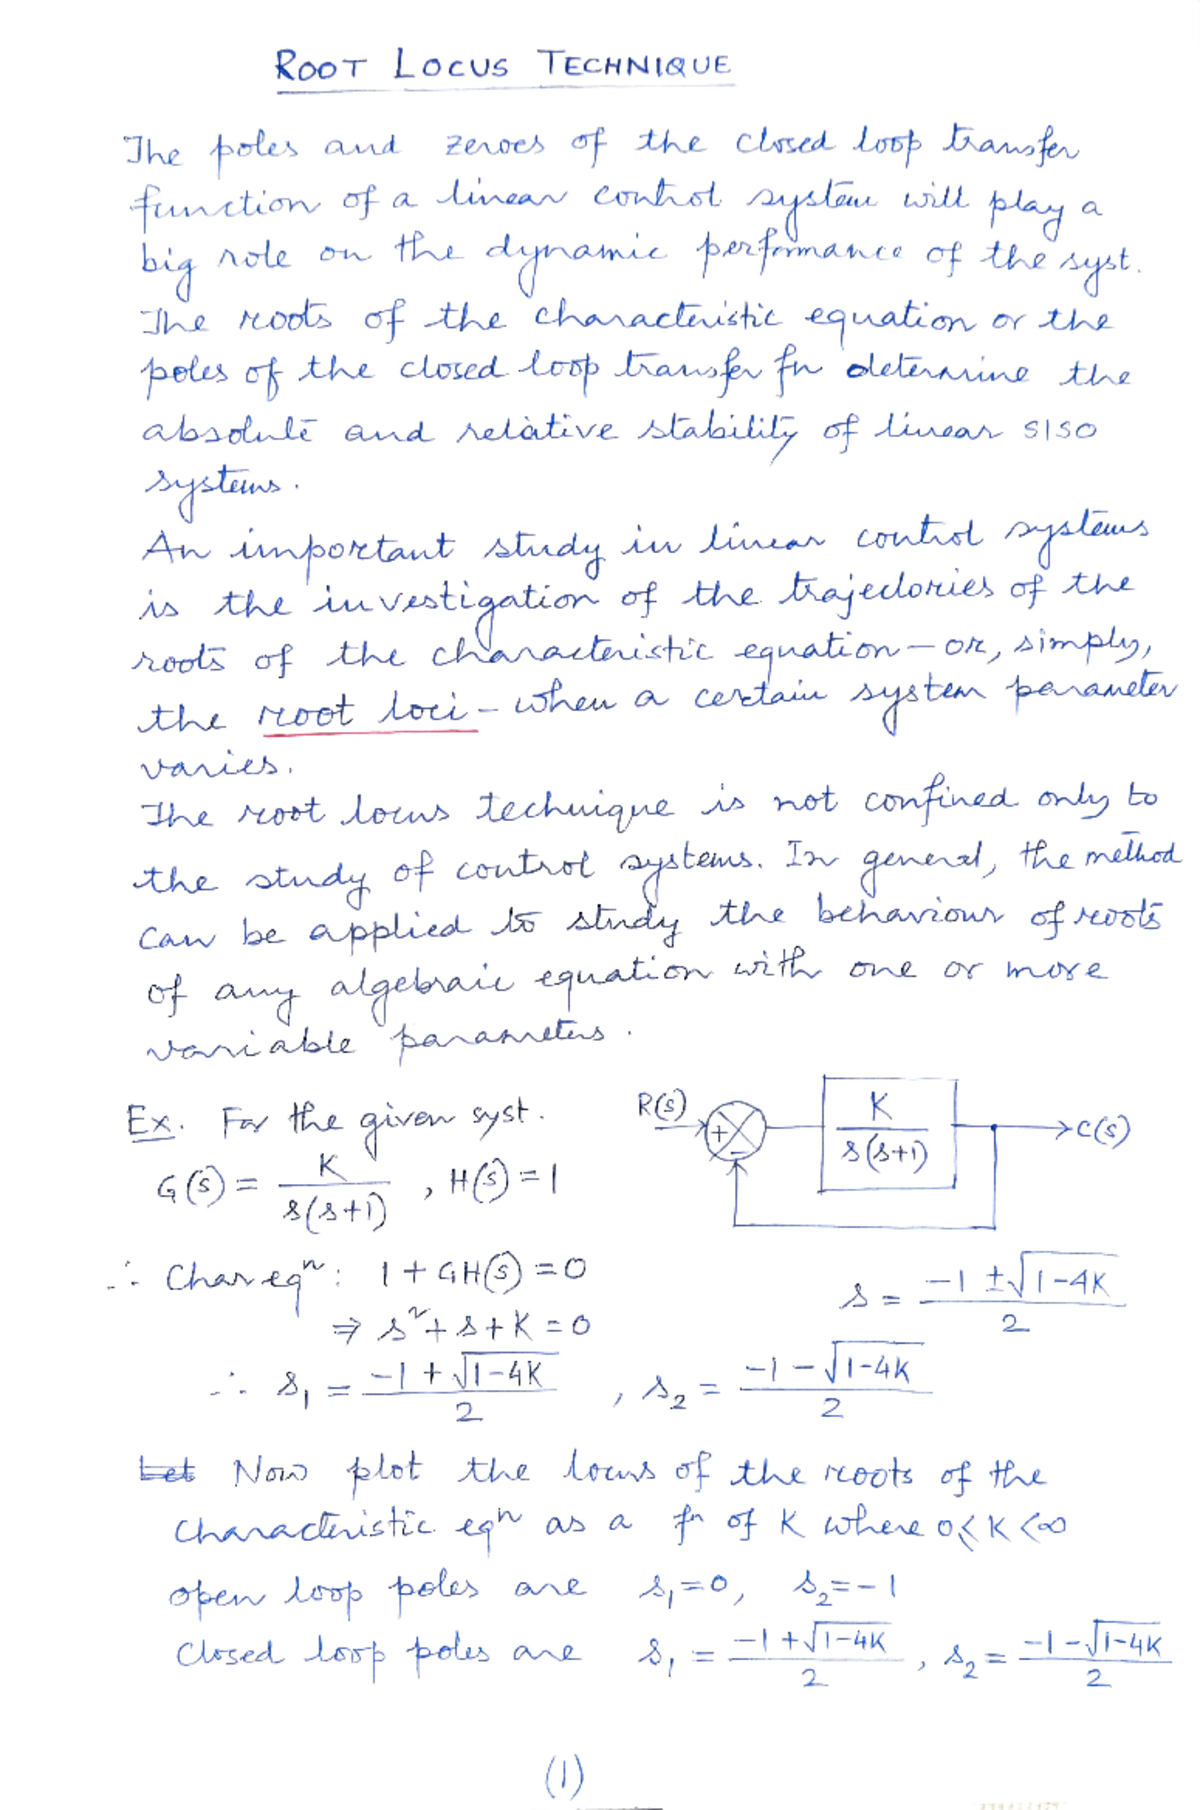 ROOT LOCUS TECHNIQUE
The poles and zeroes of the closed loop transfer
function of a linear control system will play a
big role on the dynamic performance of the syst.
The roots of the characteristic equation or the
poles of the closed loop transfer fn determine the
absolute and relative stability of linear SISO
systems.
An important study in linear control systems
is the investigation of the trajectories of the
roots of the characteristic equation — or, simply,
the root loci — when a certain system parameter
varies.
The root locus technique is not confined only to
the study of control systems. In general, the method
can be applied to study the behaviour of roots
of any algebraic equation with one or more
variable parameters.
Ex. For the given syst.
G(s) = K / s(s+1) , H(s) = 1
R(s) + − K / s(s+1) C(s)
∴ Char eqⁿ: 1 + GH(s) = 0
⇒ s² + s + K = 0
s = (−1 ± √(1−4K)) / 2
∴ s₁ = (−1 + √(1−4K)) / 2 , s₂ = (−1 − √(1−4K)) / 2
Let Now plot the locus of the roots of the
characteristic eqⁿ as a fⁿ of K where 0 ≤ K < ∞
open loop poles are s₁ = 0, s₂ = −1
Closed loop poles are s₁ = (−1 + √(1−4K)) / 2 , s₂ = (−1 − √(1−4K)) / 2
(1)